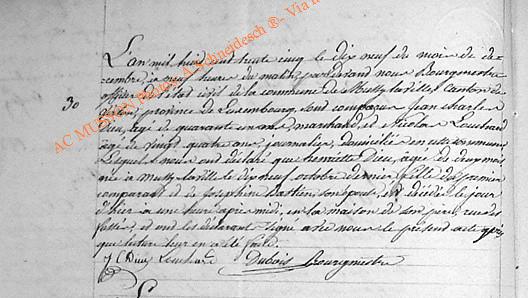 L'an mil huit cent trente cinq le dix neuf du mois de de-
cembre, à neuf heures du matin, pardevant nous Bourgmestre
officier de l'état civil de la commune de Mussy la ville, Canton de
province de Luxembourg, sont comparus Jean charles
30
Dieu, agé de quarante ans, marchand, et Nicolas Louchard
agé de vingt quatre ans, journalier, domiciliés en cette commune
Lesquels nous ont déclaré que henriette Dieu, agée de deux mois
née à Mussy la ville le dix neuf octobre dernier, fille du premier
comparant et de Josephine son épouse, est décédée le jour
d'hier à une heure après midi, en la maison de son père, rue des
et ont les déclarants signé avec nous le présent acte après
que lecture leur en a été faite.
J C Dieu Louchard Dubois Bourgmestre
AC MUSSON